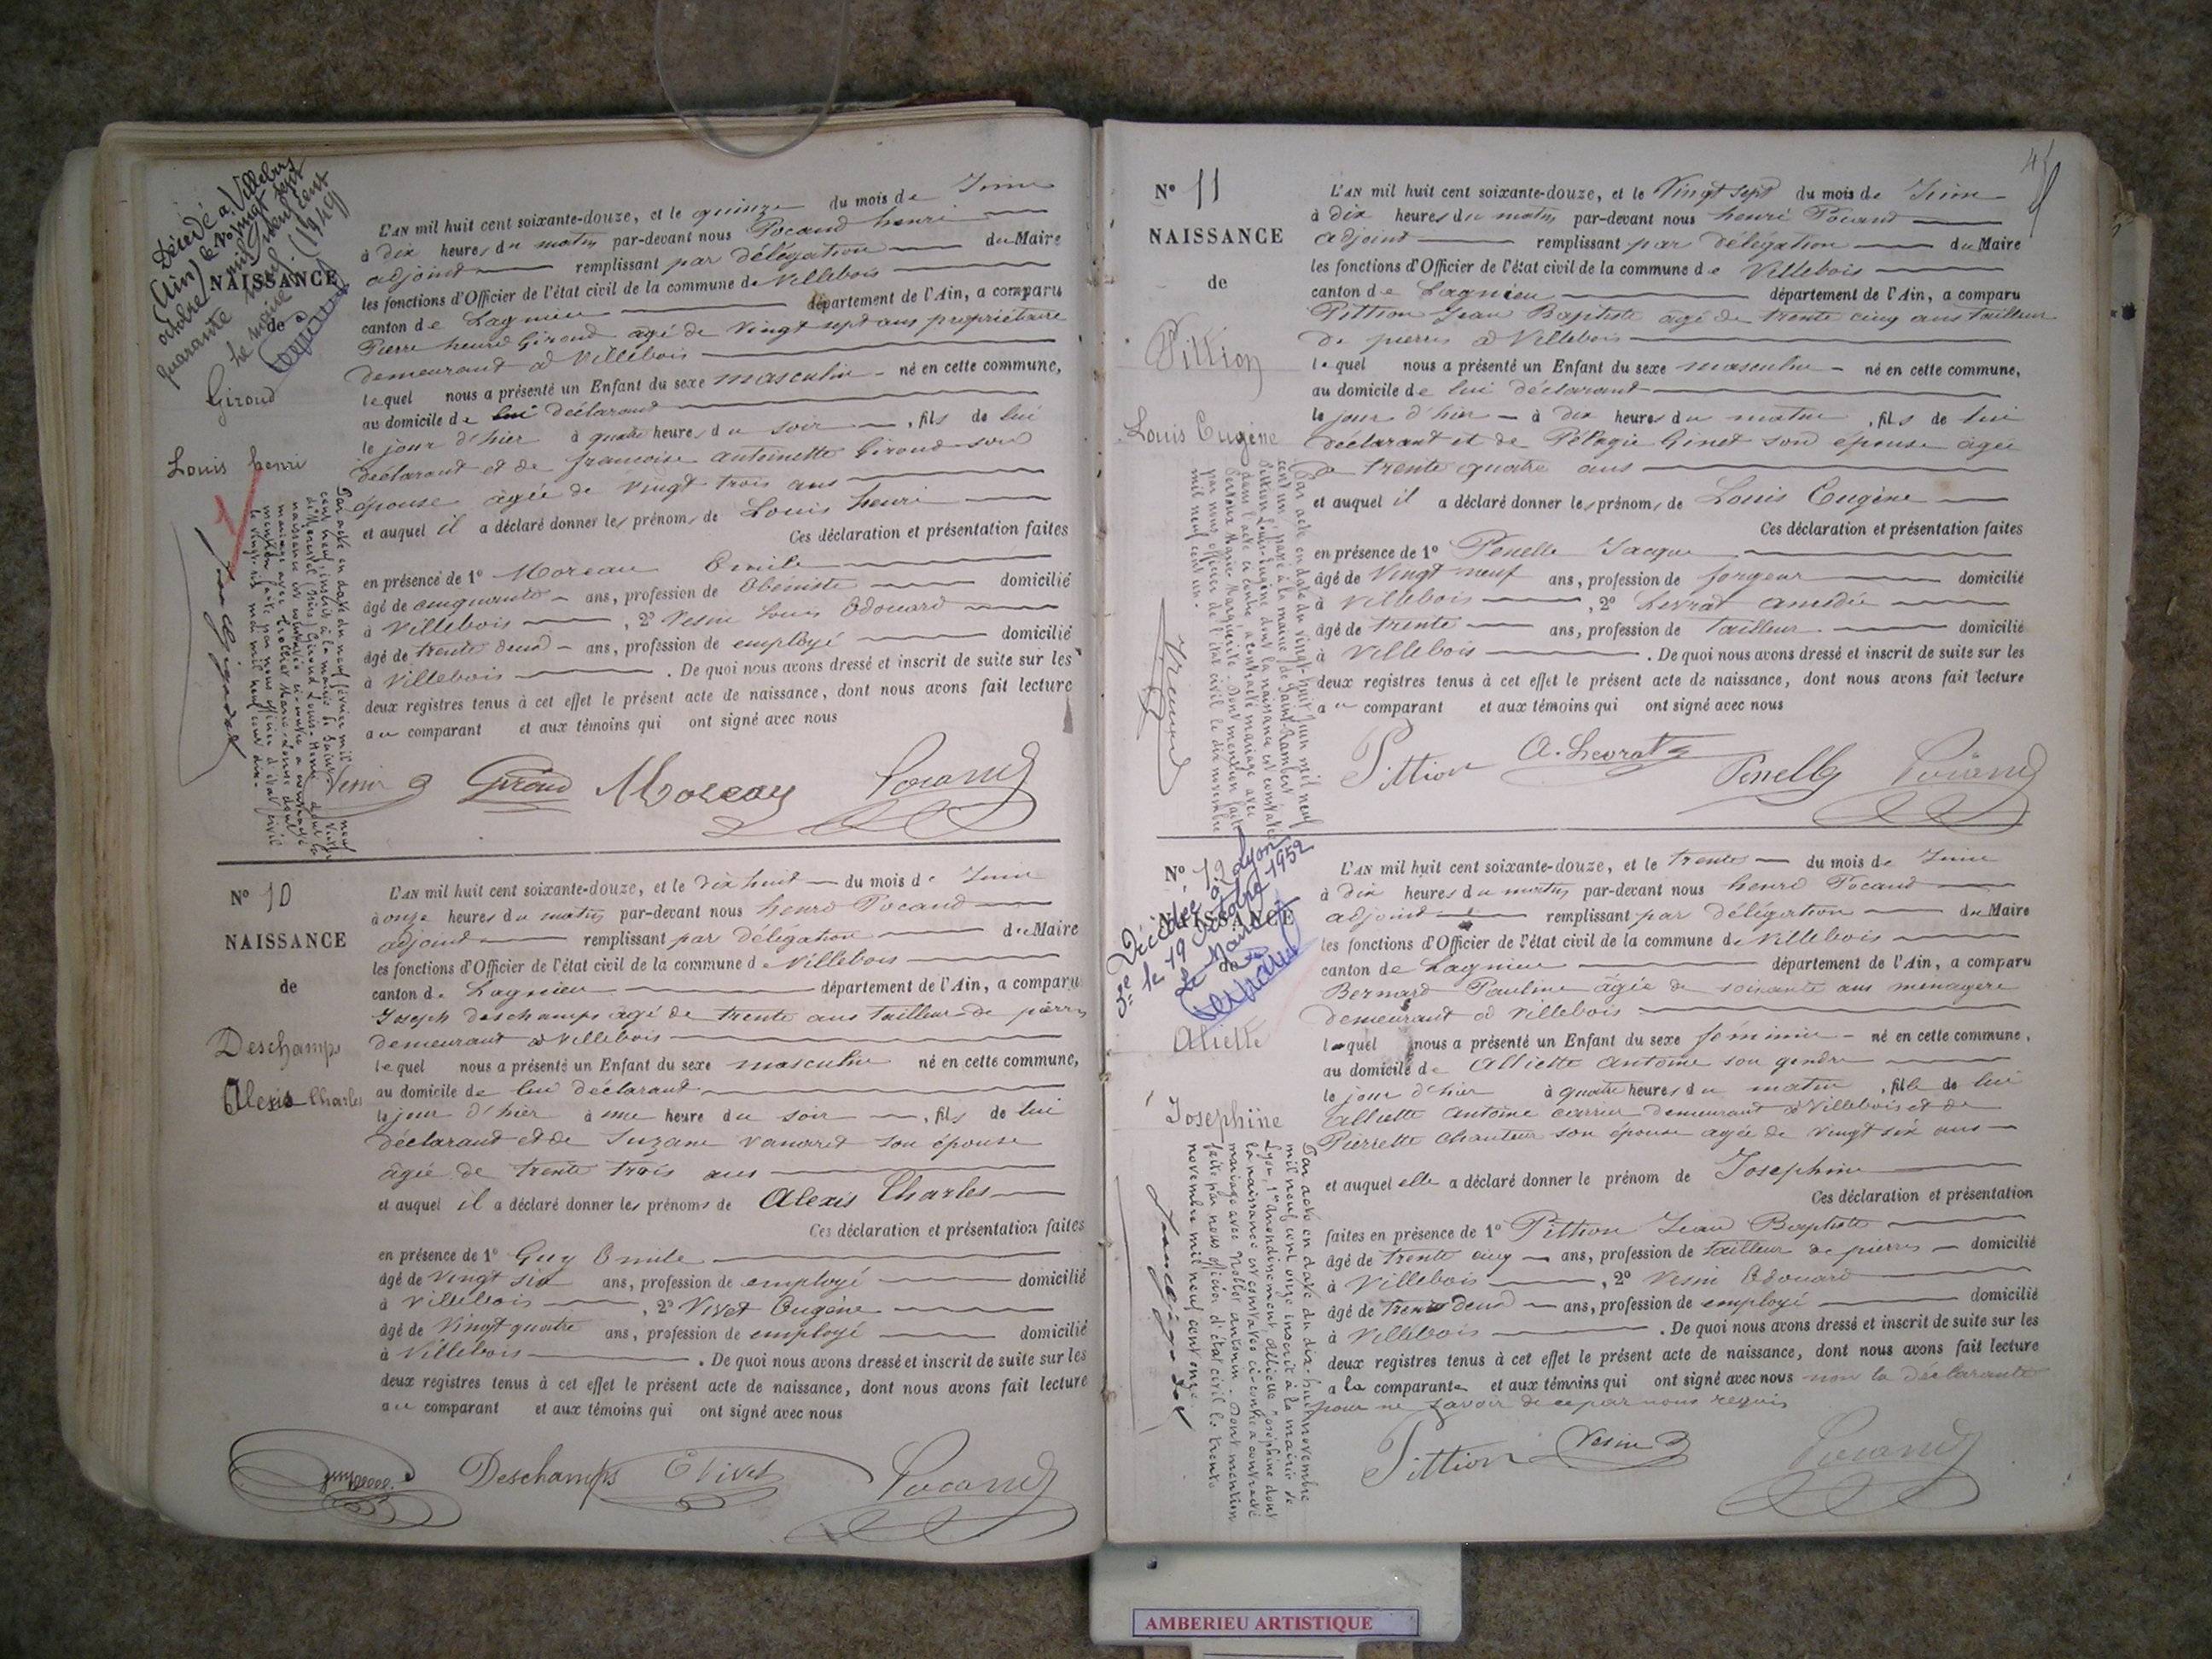 Décédé à Villebois
(Ain) le vingt sept
octobre mil neuf cent
quarante neuf (1949)
le maire
NAISSANCE
de
Giroud
Louis henri
L'AN mil huit cent soixante-douze, et le quinze du mois de Juin
à dix heures du matin par-devant nous Pocand henri
adjoint remplissant par délégation du Maire
les fonctions d'Officier de l'état civil de la commune de Villebois
canton de Lagnieu département de l'Ain, a comparu
Pierre henri Giroud agé de vingt sept ans propriétaire
demeurant à Villebois
lequel nous a présenté un Enfant du sexe masculin né en cette commune,
au domicile de lui déclarant
le jour d'hier à quatre heures du soir, fils de lui
déclarant et de francoise antoinette Giroud son
épouse agée de vingt trois ans
et auquel il a déclaré donner les prénoms de Louis henri
Ces déclaration et présentation faites
en présence de 1° Moreau Emile
âgé de cinquante ans, profession de Ebéniste domicilié
à Villebois, 2° Vesin Louis Edouard
âgé de trente deux ans, profession de employé domicilié
à Villebois. De quoi nous avons dressé et inscrit de suite sur les
deux registres tenus à cet effet le présent acte de naissance, dont nous avons fait lecture
au comparant et aux témoins qui ont signé avec nous
Vesin Giroud Moreau Pocand
N° 10
NAISSANCE
de
Deschamps
Alexis Charles
L'AN mil huit cent soixante-douze, et le dix huit du mois de Juin
à onze heures du matin par-devant nous henri Pocand
adjoint remplissant par délégation du Maire
les fonctions d'Officier de l'état civil de la commune de Villebois
canton de Lagnieu département de l'Ain, a comparu
Joseph deschamps agé de trente ans tailleur de pierres
demeurant à Villebois
lequel nous a présenté un Enfant du sexe masculin né en cette commune,
au domicile de lui déclarant
le jour d'hier à une heure du soir, fils de lui
déclarant et de Suzane vanaret son épouse
âgée de trente trois ans
et auquel il a déclaré donner les prénoms de Alexis Charles
Ces déclaration et présentation faites
en présence de 1° Guy Emile
âgé de vingt six ans, profession de employé domicilié
à Villebois, 2° Vivet Eugène
âgé de vingt quatre ans, profession de employé domicilié
à Villebois. De quoi nous avons dressé et inscrit de suite sur les
deux registres tenus à cet effet le présent acte de naissance, dont nous avons fait lecture
au comparant et aux témoins qui ont signé avec nous
Deschamps E Vivet Pocand
N° 11
NAISSANCE
de
Pittion
Louis Eugène
L'AN mil huit cent soixante-douze, et le Vingt sept du mois de Juin
à dix heures du matin par-devant nous henri Pocand
adjoint remplissant par délégation du Maire
les fonctions d'Officier de l'état civil de la commune de Villebois
canton de Lagnieu département de l'Ain, a comparu
Pittion Jean Baptiste agé de trente cinq ans tailleur
de pierres à Villebois
lequel nous a présenté un Enfant du sexe masculin né en cette commune,
au domicile de lui déclarant
le jour d'hier à dix heures du matin, fils de lui
déclarant et de Pélagie Ginet son épouse agée
de trente quatre ans
et auquel il a déclaré donner les prénoms de Louis Eugène
Ces déclaration et présentation faites
en présence de 1° Penelle Jacque
âgé de Vingt neuf ans, profession de forgeur domicilié
à Villebois, 2° Levrat amédée
âgé de trente ans, profession de tailleur domicilié
à Villebois. De quoi nous avons dressé et inscrit de suite sur les
deux registres tenus à cet effet le présent acte de naissance, dont nous avons fait lecture
au comparant et aux témoins qui ont signé avec nous
Pittion A. Levrat Penelle Pocand
N° 12
NAISSANCE
de
Décédée à Lyon
3e le 19 octobre 1952
Le Maire
Aliette
Josephine
L'AN mil huit cent soixante-douze, et le trente du mois de Juin
à dix heures du matin par-devant nous henri Pocand
adjoint remplissant par délégation du Maire
les fonctions d'Officier de l'état civil de la commune de Villebois
canton de Lagnieu département de l'Ain, a comparu
Bernard Pauline âgée de soixante ans ménagère
demeurant à Villebois
lequel nous a présenté un Enfant du sexe féminin né en cette commune,
au domicile de Alliette Antoine son gendre
le jour d'hier à quatre heures du matin, fille de lui
alliette antoine carrier demeurant à Villebois et de
Pierrette Chanteur son épouse agée de vingt six ans
et auquel elle a déclaré donner le prénom de Josephine
Ces déclaration et présentation
faites en présence de 1° Pittion Jean Baptiste
âgé de trente cinq ans, profession de tailleur de pierres domicilié
à Villebois, 2° Vesin Edouard
âgé de trente deux ans, profession de employé domicilié
à Villebois. De quoi nous avons dressé et inscrit de suite sur les
deux registres tenus à cet effet le présent acte de naissance, dont nous avons fait lecture
a la comparante et aux témoins qui ont signé avec nous non la déclarante
pour ne savoir de ce par nous requis
Pittion Vesin Pocand
Par acte en date du dix-huit novembre
mil neuf cent onze inscrit à la mairie de
Lyon, arrondissement, Alliette Joséphine dont
la naissance est constatée ci-contre a contracté
mariage avec antonin. Dont mention
faite par nous officier d'état civil le trente
novembre mil neuf cent onze
AMBERIEU ARTISTIQUE